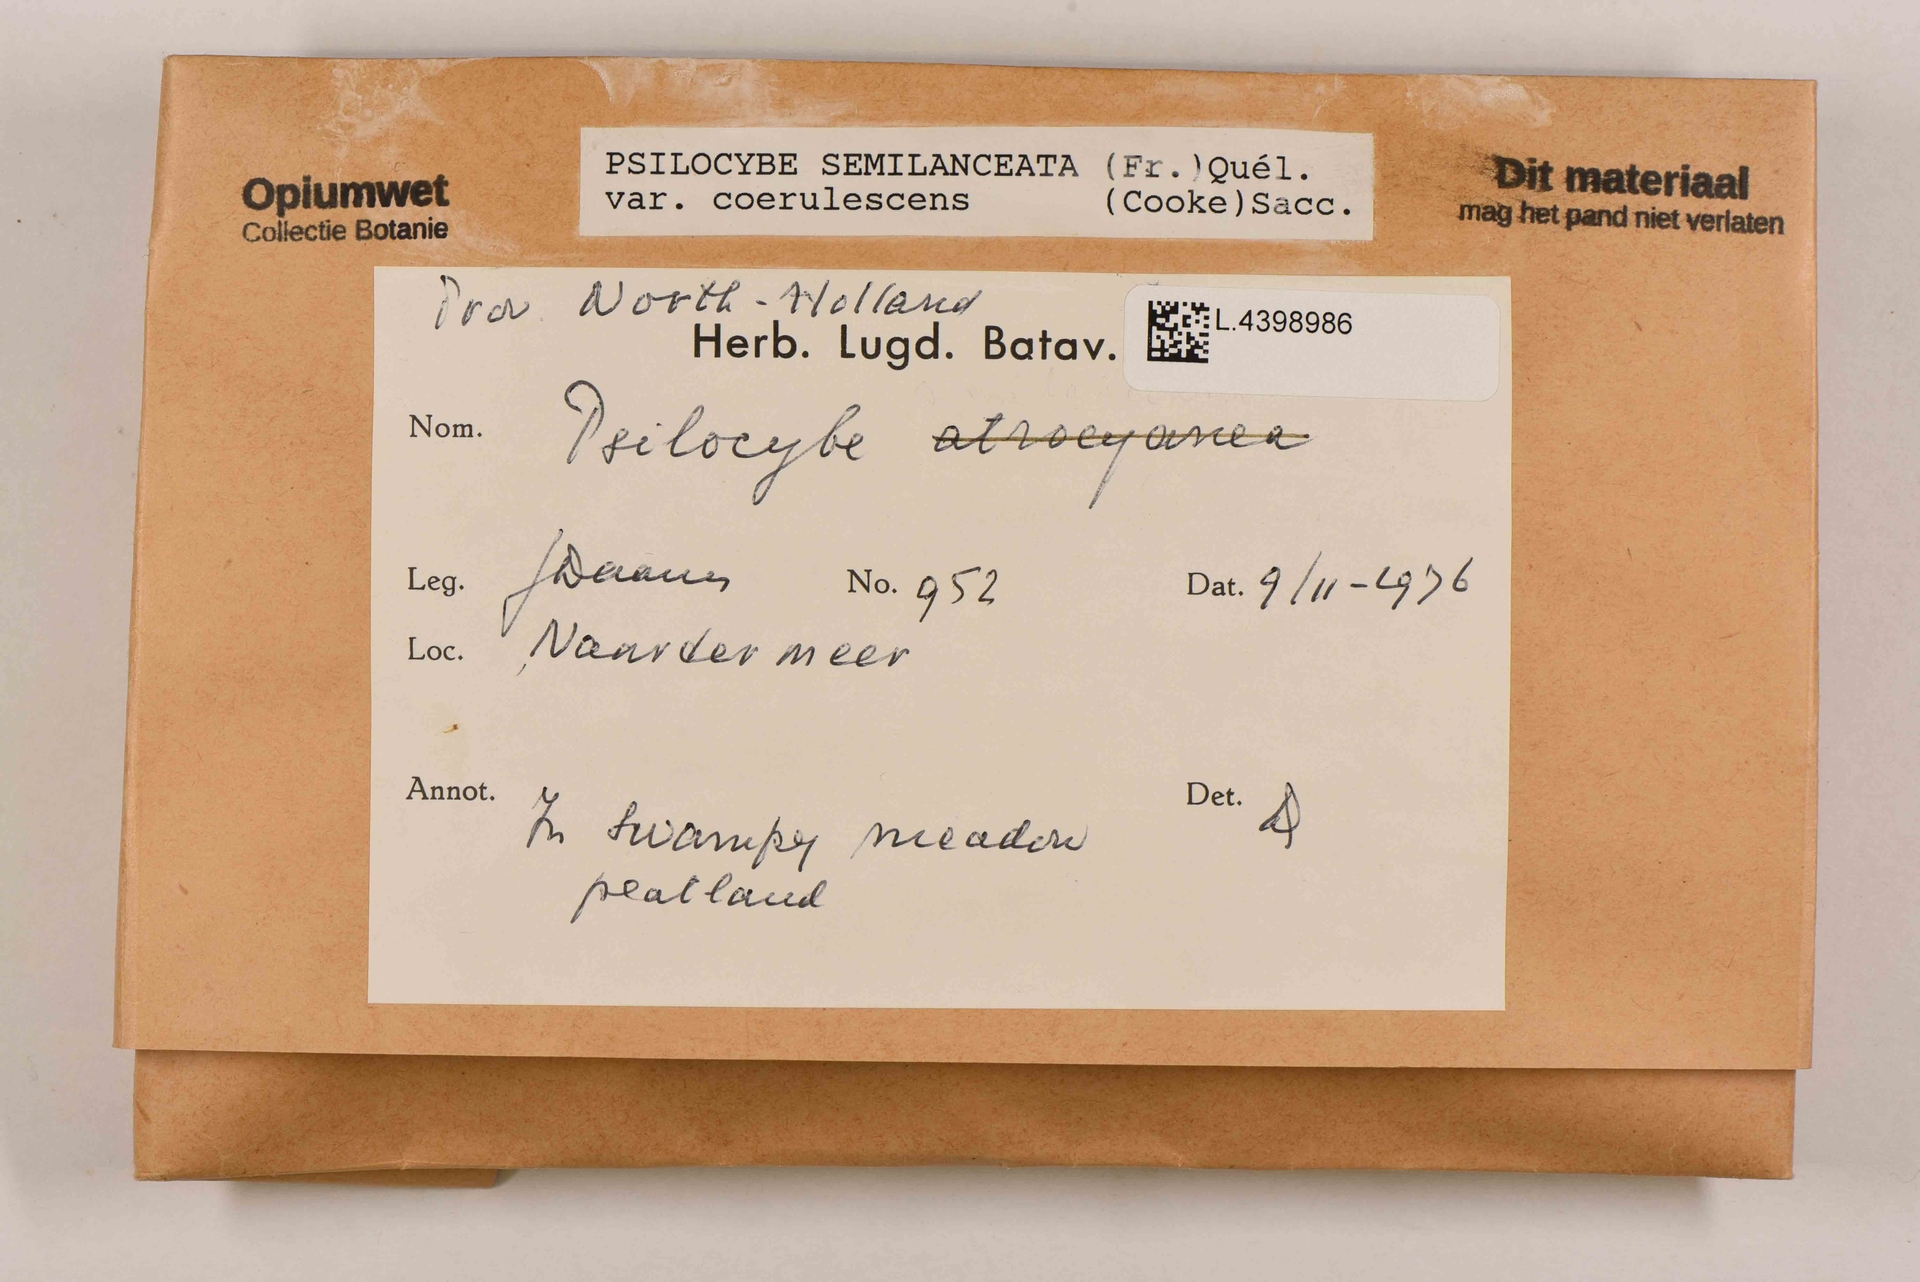 Opiumwet
Collectie Botanie
PSILOCYBE SEMILANCEATA (Fr.)Quél.
var. coerulescens (Cooke)Sacc.
Dit materiaal
mag het pand niet verlaten
Prov. North-Holland
Herb. Lugd. Batav.
L.4398986
Nom. Psilocybe atrocyanea
Leg. J Daams No. 952 Dat. 9/11-1976
Loc. Naardermeer
Annot. In swampy meadow
peatland
Det. D